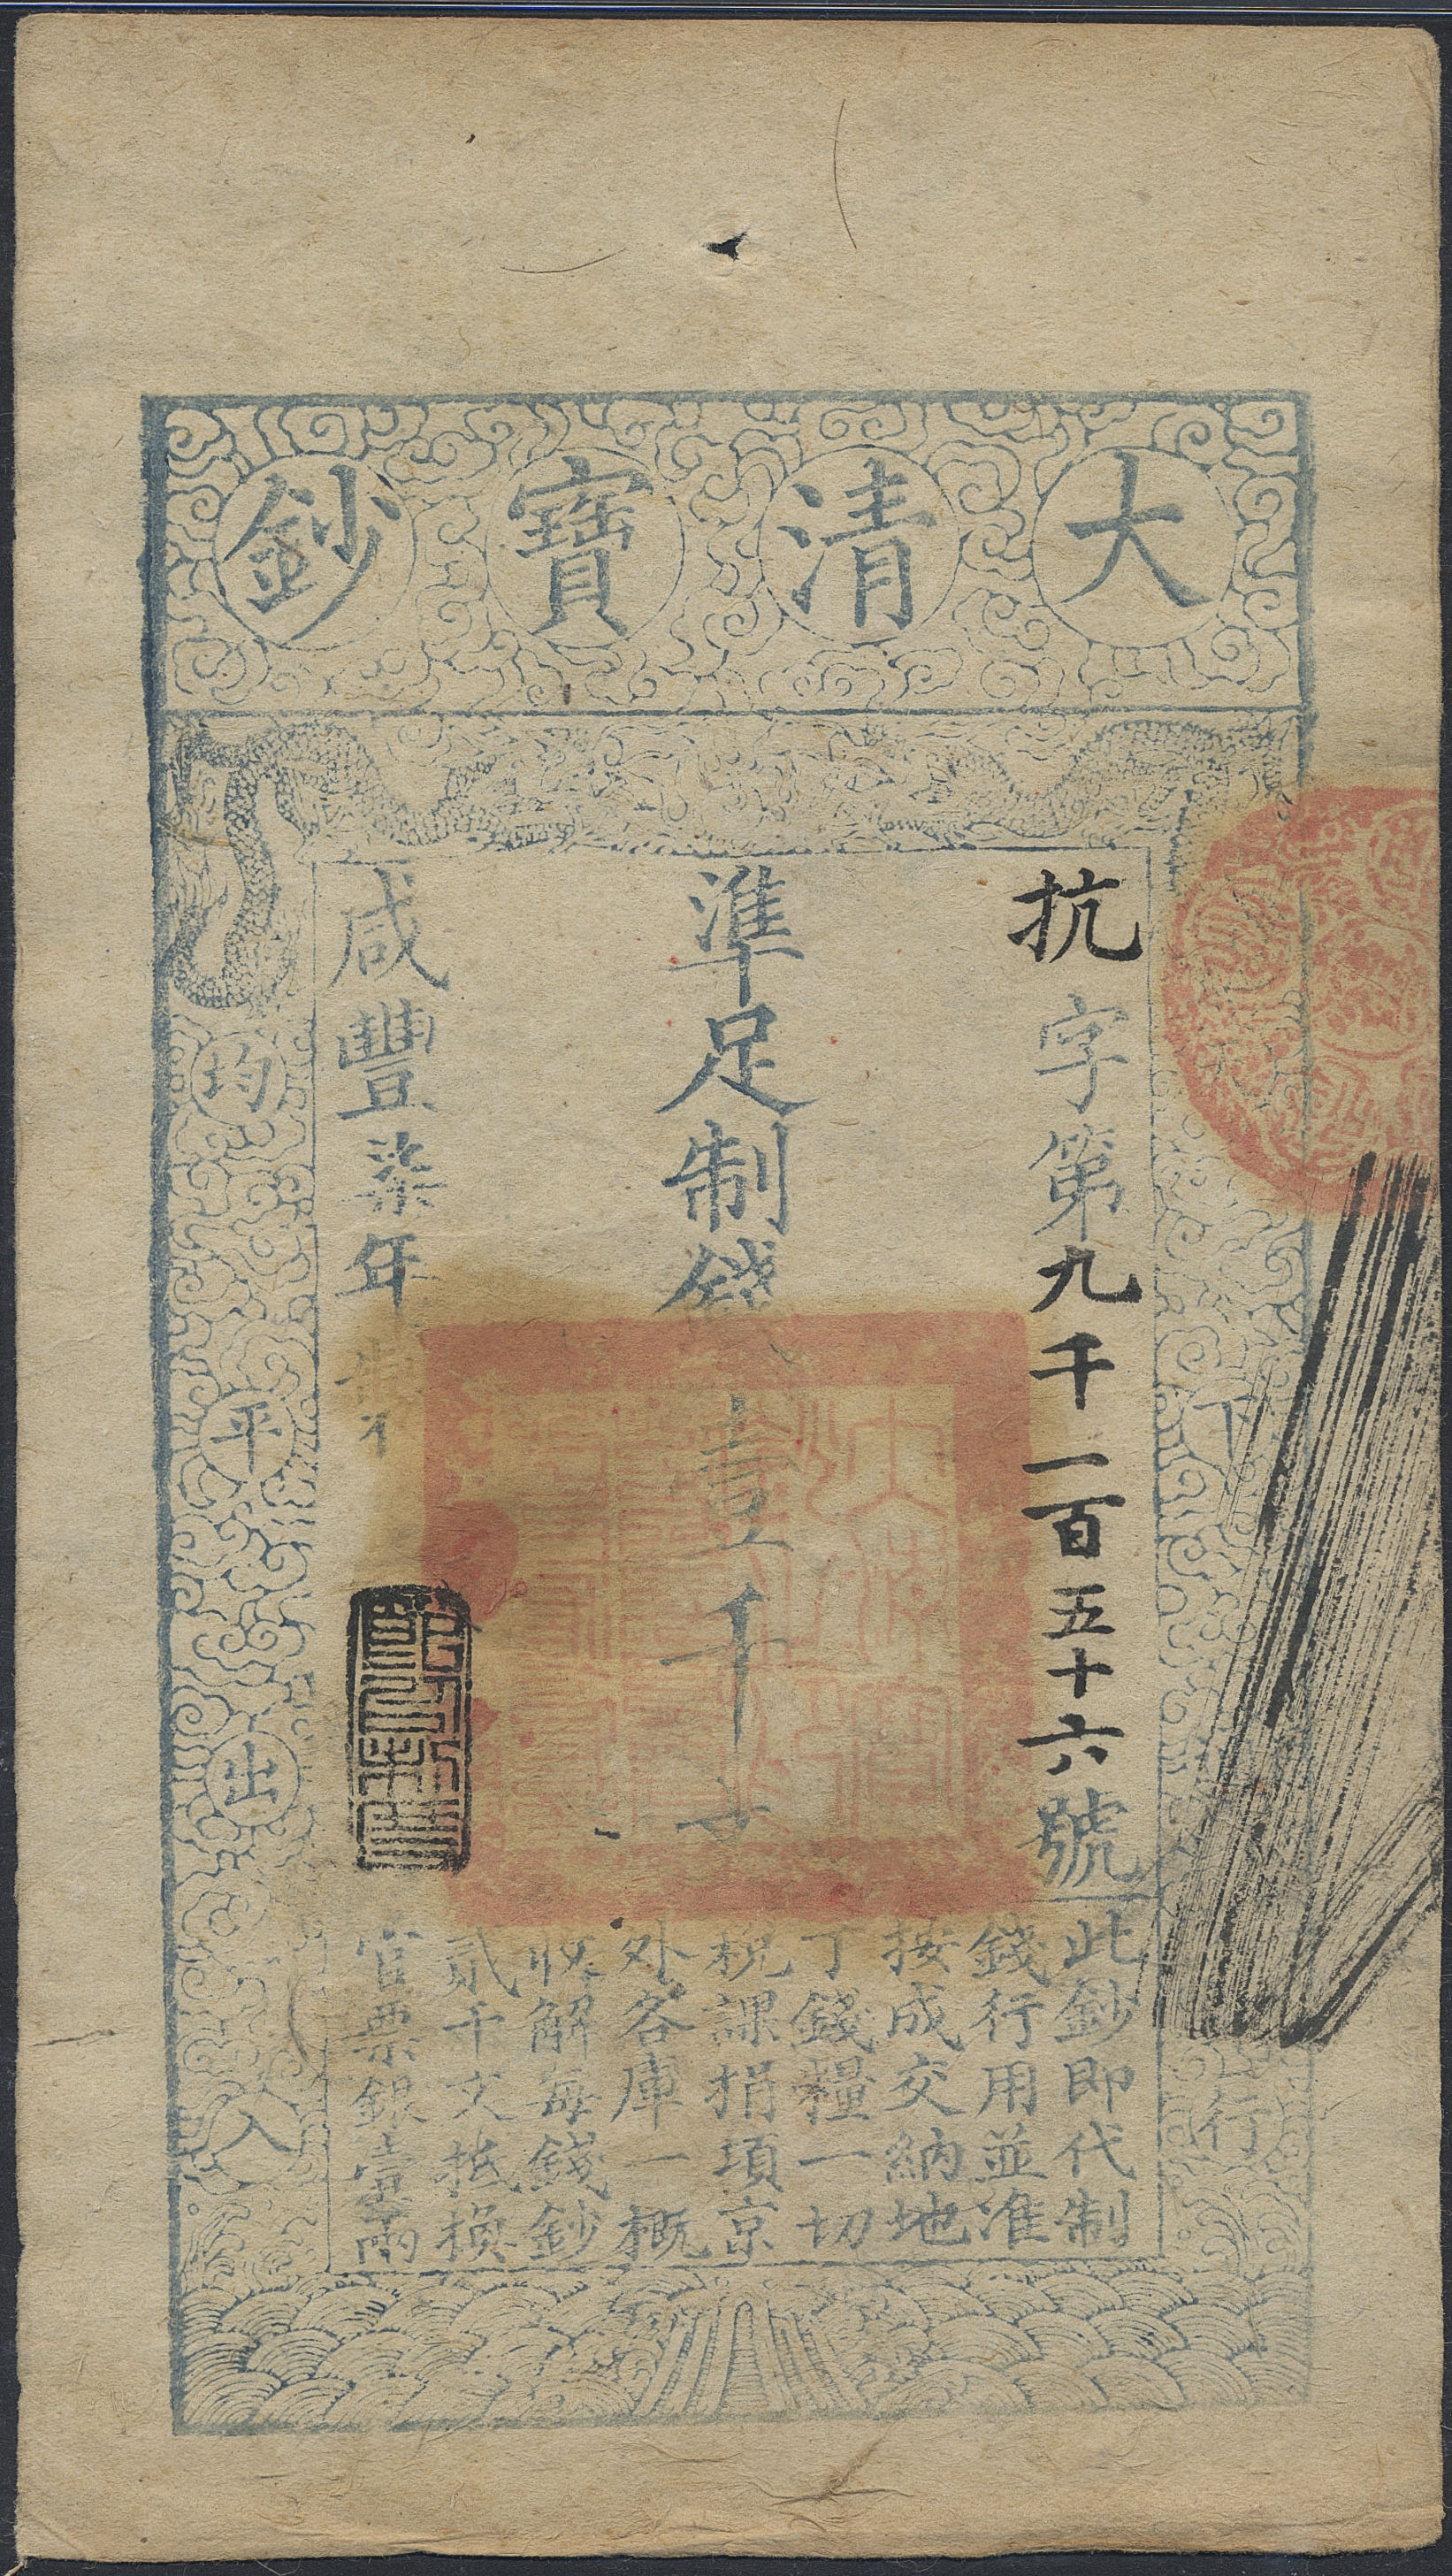 大清寶鈔
抗字第九千一百五十六號
準足制錢壹千文
咸豐柒年製
天下
行
均平出入
此鈔即代制
錢行用並准
按成交納地
丁錢糧一切
稅課捐項京
外各庫一概
收解每錢鈔
貳千文抵換
官票銀壹兩